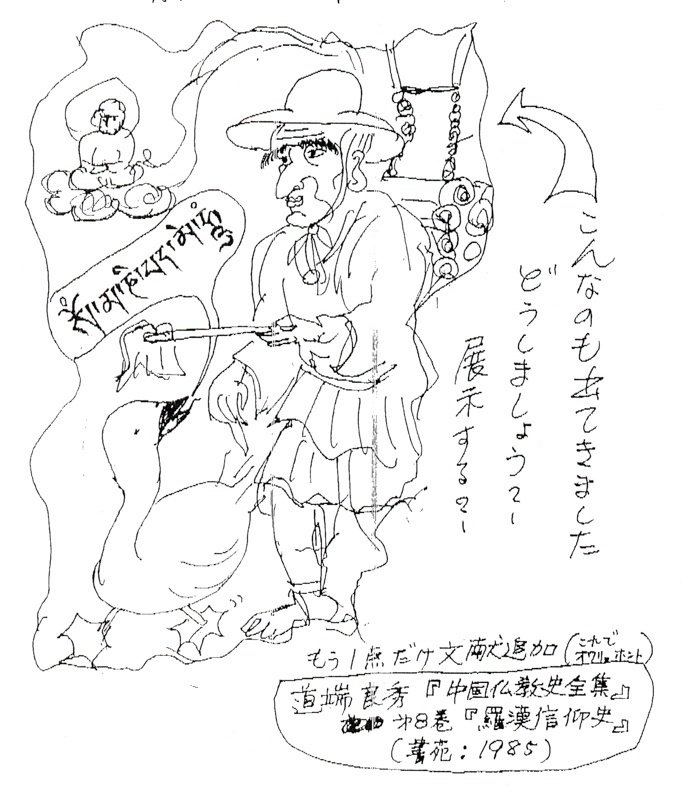 こんなのも出てきました
どうしましょう?
展示する?
もう1点だけ文献追加(これで
オワリ ホント)
道端良秀『中国仏教史全集』
第8巻『羅漢信仰史』
(書苑:1985)